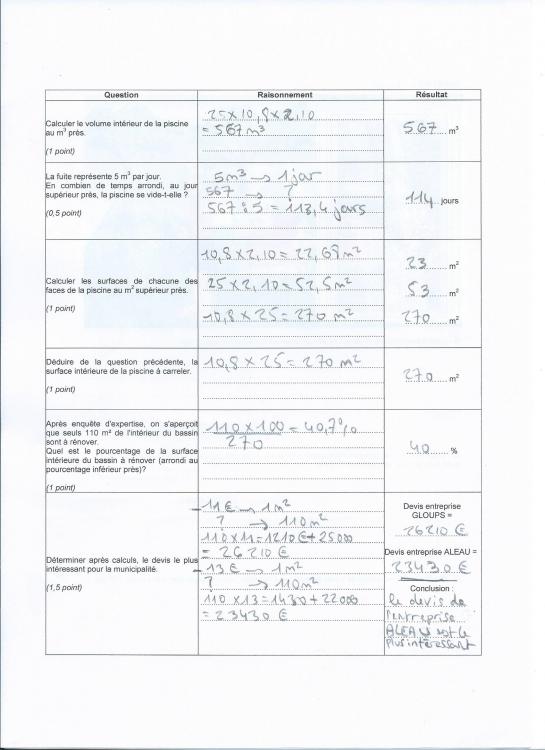 Question Raisonnement Résultat
Calculer le volume intérieur de la piscine
au m³ près.
(1 point)
25 x 10,8 x 2,10
= 567 m³
567 m³
La fuite représente 5 m³ par jour.
En combien de temps arrondi, au jour
supérieur près, la piscine se vide-t-elle ?
(0,5 point)
5 m³ → 1 jour
567 → ?
567 : 5 = 113,4 jours
114 jours
Calculer les surfaces de chacune des
faces de la piscine au m² supérieur près.
(1 point)
10,8 x 2,10 = 22,68 m²
25 x 2,10 = 52,5 m²
10,8 x 25 = 270 m²
23 m²
53 m²
270 m²
Déduire de la question précédente, la
surface intérieure de la piscine à carreler.
(1 point)
10,8 x 25 = 270 m²
270 m²
Après enquête d'expertise, on s'aperçoit
que seuls 110 m² de l'intérieur du bassin
sont à rénover.
Quel est le pourcentage de la surface
intérieure du bassin à rénover (arrondi au
pourcentage inférieur près)?
(1 point)
110 x 100 = 40,7%
270
40 %
Déterminer après calculs, le devis le plus
intéressant pour la municipalité.
(1,5 point)
- 11 € → 1 m²
? → 110 m²
110 x 11 = 1210 € + 25 000
= 26 210 €
- 13 € → 1 m²
? → 110 m²
110 x 13 = 1430 + 22 000
= 23 430 €
Devis entreprise
GLOUPS =
26210 €
Devis entreprise ALEAU =
23430 €
Conclusion :
le devis de
l'entreprise
ALEAU est le
plus intéressant